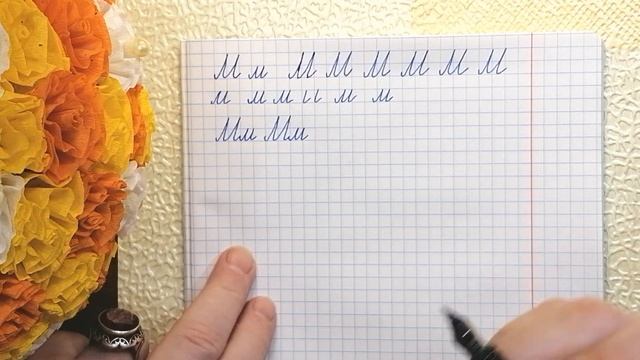 М м М М М М М М
м м м м м
Мм Мм